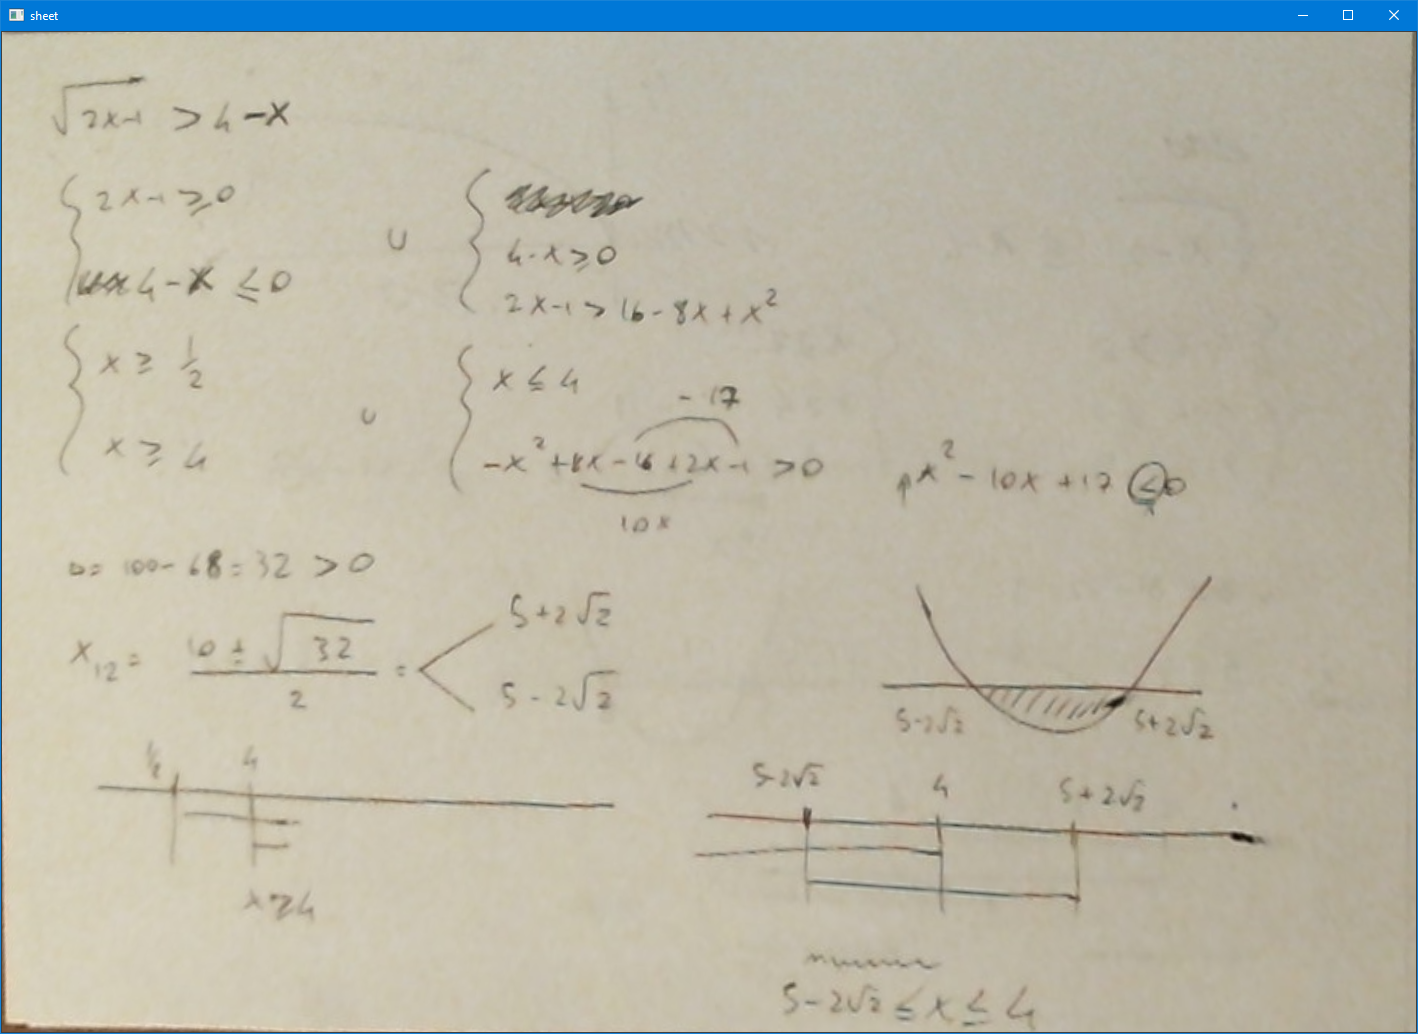 sheet
√2x-1 > 4-x
{ 2x-1 ≥ 0
4-x ≤ 0
∪
{ 4-x ≥ 0
2x-1 > 16-8x+x²
{ x ≥ 1/2
x ≥ 4
∪
{ x ≤ 4
-17
-x²+8x-16+2x-1 >0
10x
x²-10x+17 ≤ 0
Δ= 100-68=32 >0
x₁₂= (10 ± √32)/2 =
5+2√2
5-2√2
5-2√2 5+2√2
1/2 4
x≥4
5-2√2 4 5+2√2
5-2√2 ≤ x ≤ 4